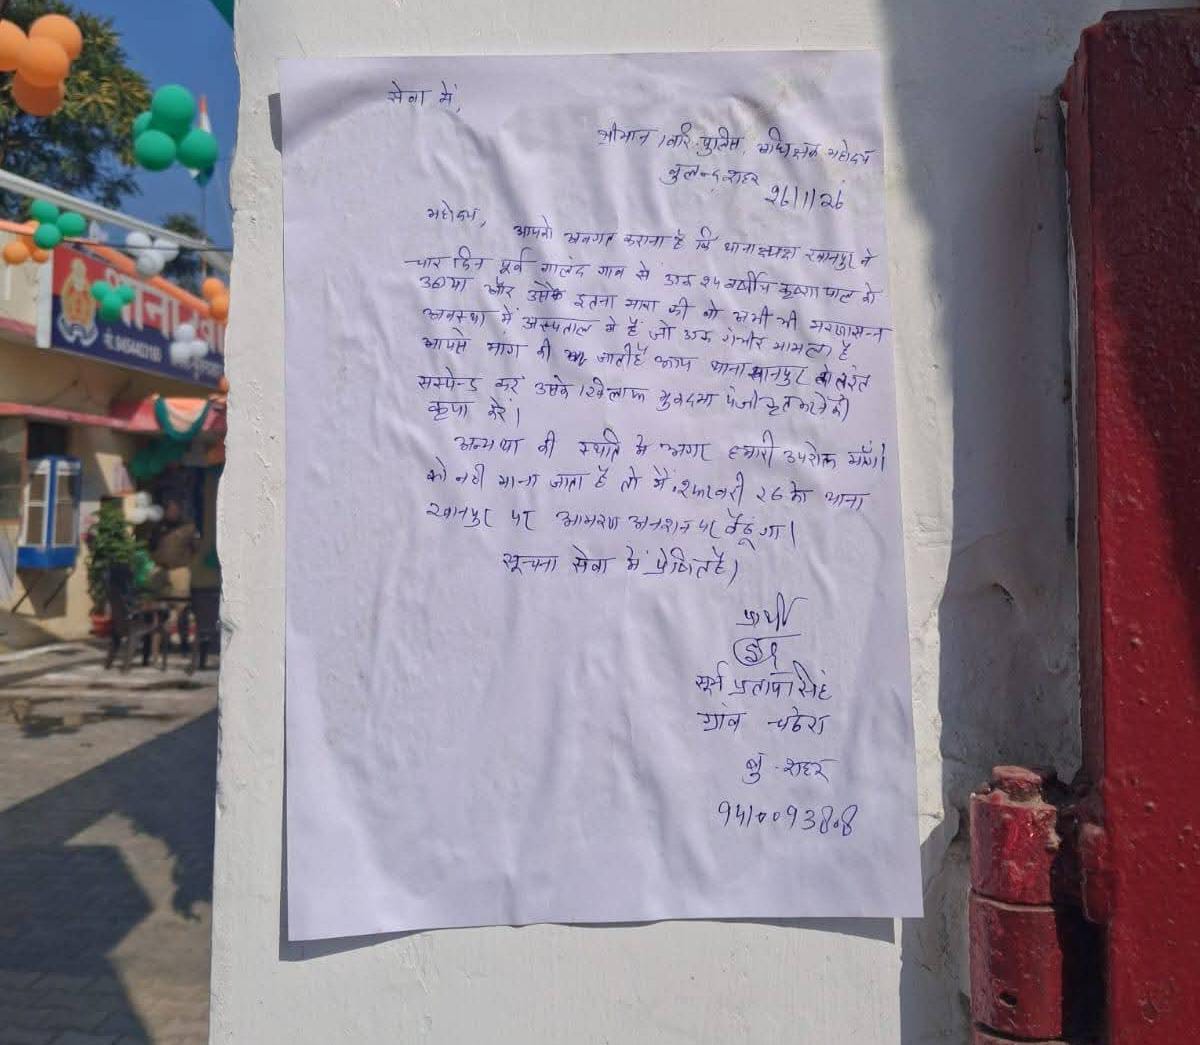 सेवा में,
श्रीमान वरि. पुलिस, अधिक्षक महोदय
बुलन्दशहर
26/1/26
महोदय,
आपको अवगत कराना है कि थानाध्यक्ष खानपुर ने
चार दिन पूर्व गालंद गाव से एक २५ वर्षीय कृष्ण पाल को
उठाया और उसके इतना मारा की वो अभी भी मरणासन्न
अवस्था में अस्पताल मे है जो एक गंभीर मामला है
आपसे मांग की जाती है आप थाना खानपुर को तुरंत
सस्पेन्ड कर उसके खिलाफ मुकदमा पंजीकृत करने की
कृपा करें।
अन्यथा की स्थति मे अगर हमारी उपरोक्त माँगो
को नही माना जाता है तो मैं 2 फरवरी 26 को थाना
खानपुर पर आमरण अनशन पर बैठूंगा।
सूचना सेवा में प्रेषित है।
प्रार्थी
सूर्य प्रताप सिंह
गांव चढेरा
बु. शहर
9410093808
थाना खा
नं. 9454403160